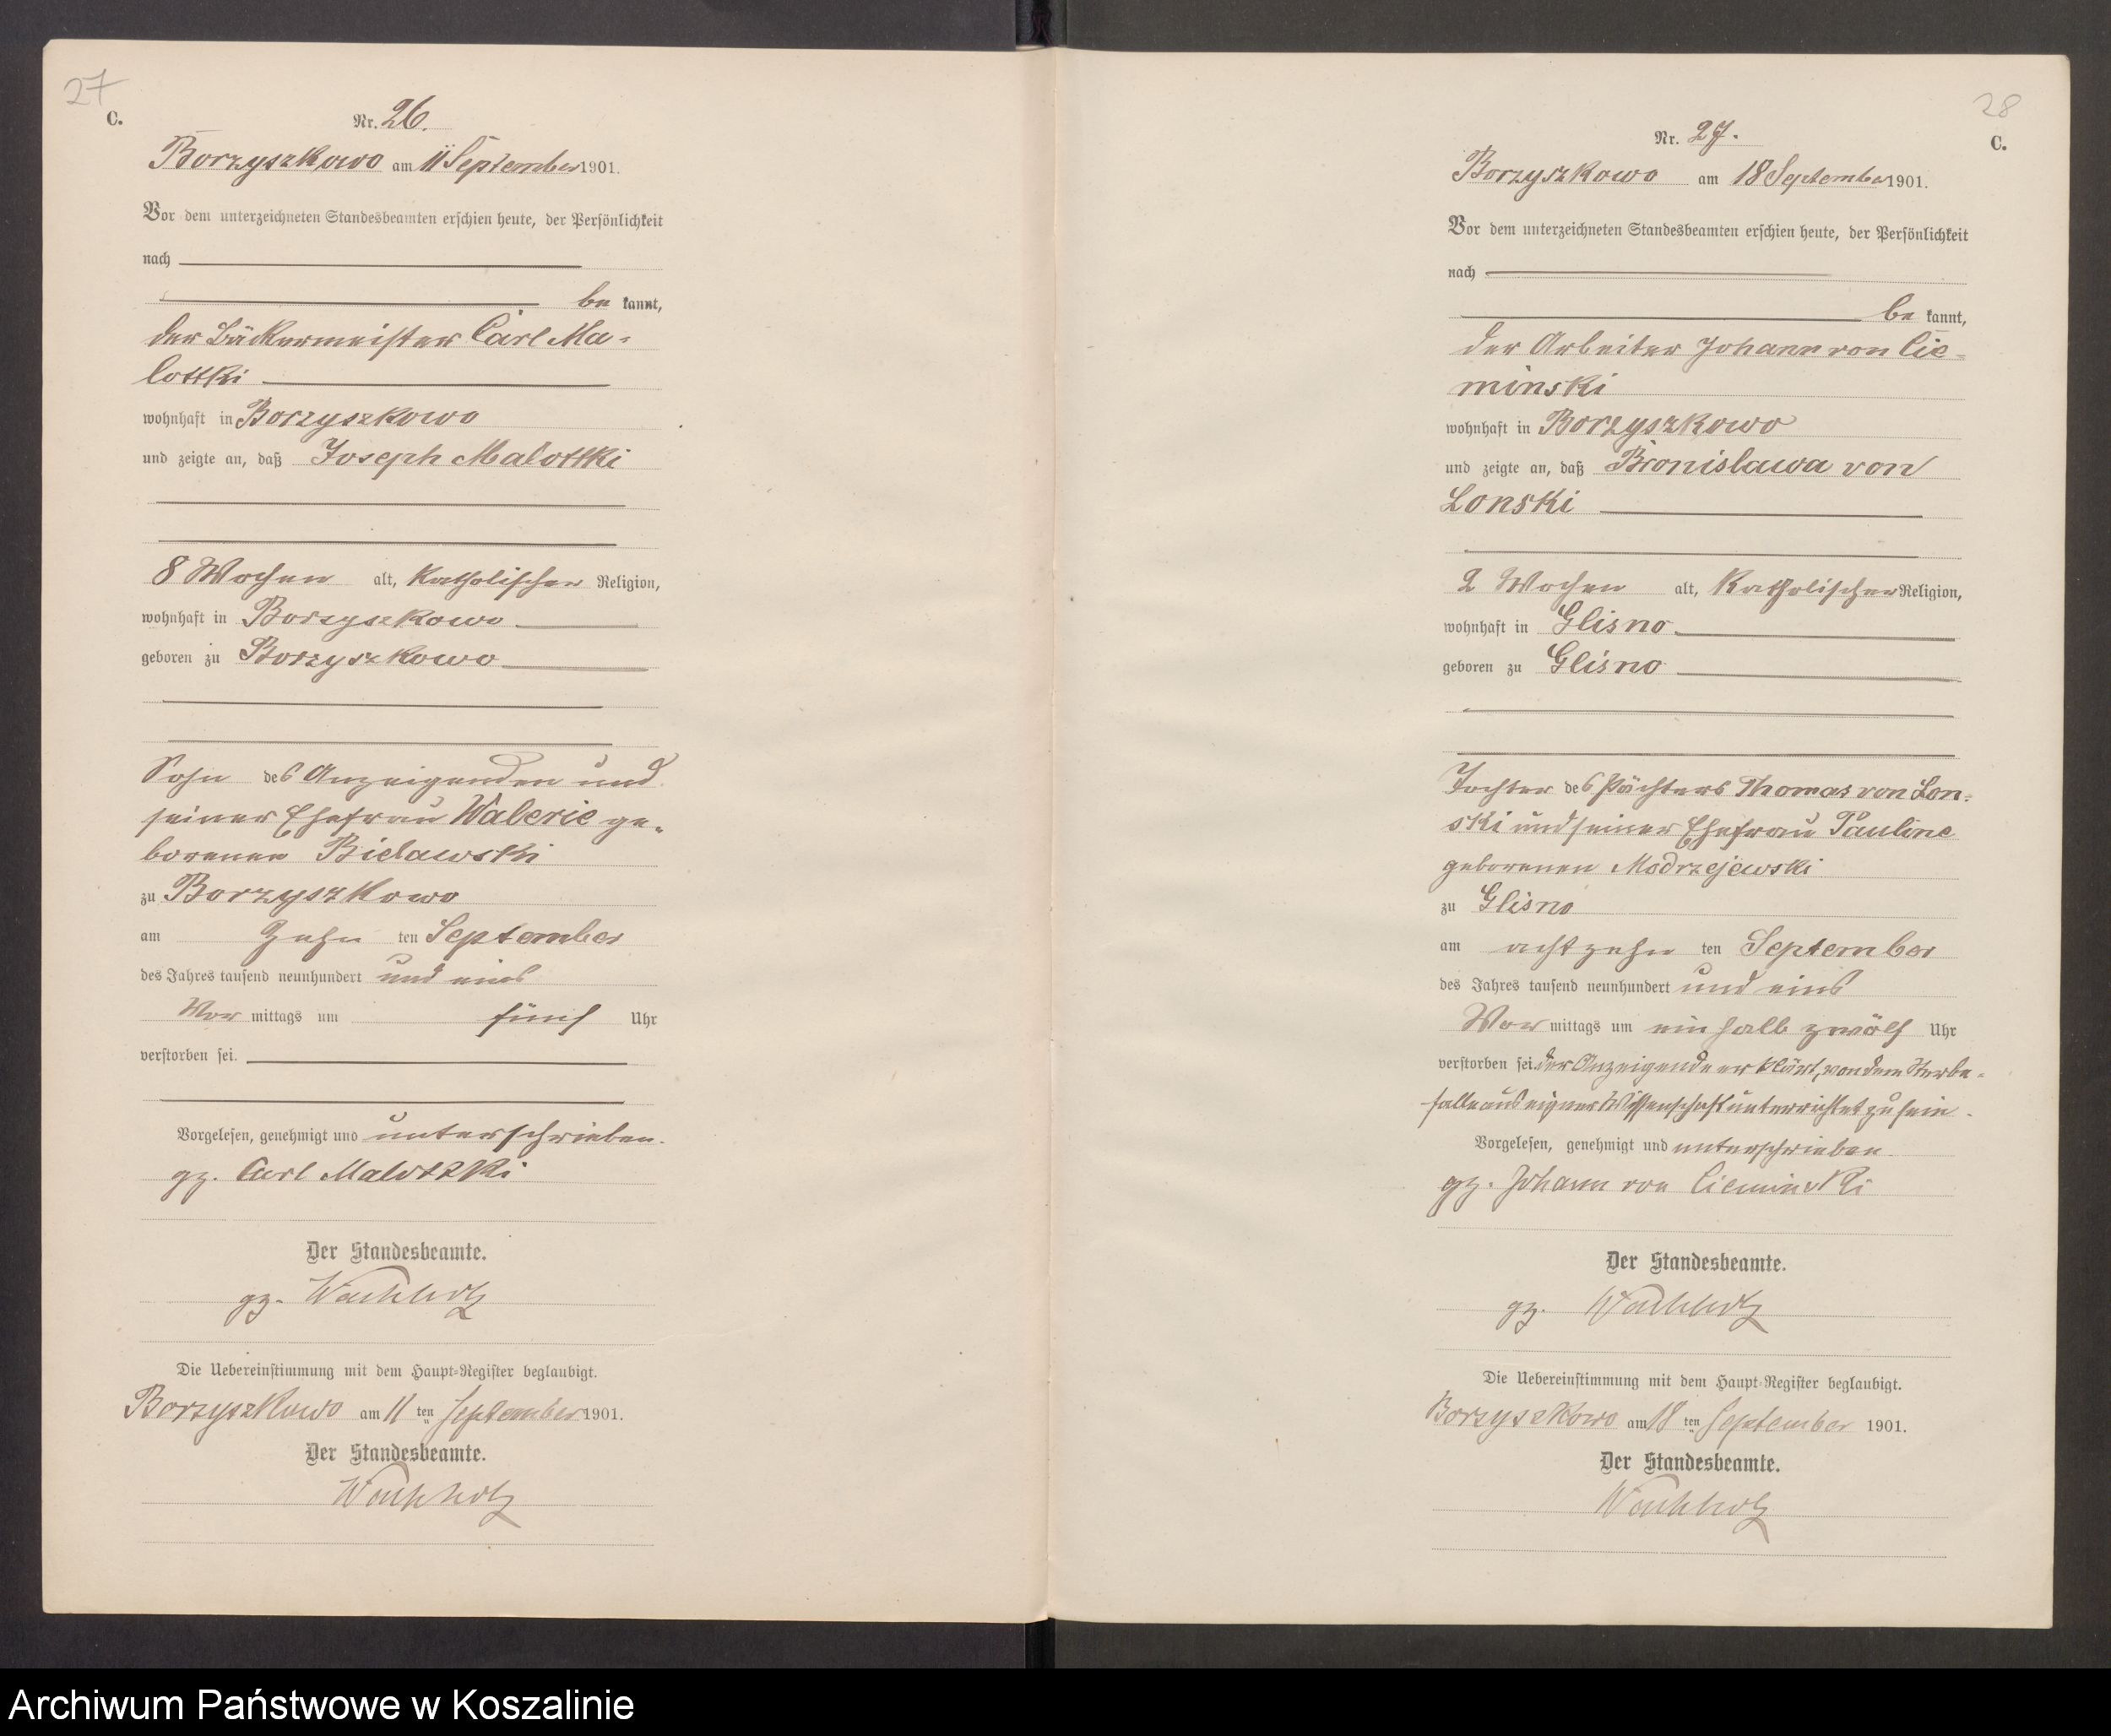 27
C.
Nr. 26.
Borzyszkowo am 11 September 1901.
Vor dem unterzeichneten Standesbeamten erschien heute, der Persönlichkeit
nach
be kannt,
der Bäckermeister Carl Ma-
lottki
wohnhaft in Borzyszkowo
und zeigte an, daß Joseph Malottki
8 Wochen alt, katholischer Religion,
wohnhaft in Borzyszkowo
geboren zu Borzyszkowo
Sohn des Anzeigenden und
seiner Ehefrau Walerie ge-
borenen Bielawski
zu Borzyszkowo
am Zehn ten September
des Jahres tausend neunhundert und eins
Vor mittags um fünf Uhr
verstorben sei.
Vorgelesen, genehmigt und unterschrieben.
gz. Carl Malottki
Der Standesbeamte.
gz. Wachholz
Die Uebereinstimmung mit dem Haupt-Register beglaubigt.
Borzyszkowo am 11 ten September 1901.
Der Standesbeamte.
Wachholz
28
C.
Nr. 27.
Borzyszkowo am 18 September 1901.
Vor dem unterzeichneten Standesbeamten erschien heute, der Persönlichkeit
nach
be kannt,
der Arbeiter Johann von Cie-
minski
wohnhaft in Borzyszkowo
und zeigte an, daß Bronislawa von
Lonski
2 Wochen alt, katholischer Religion,
wohnhaft in Glisno
geboren zu Glisno
Tochter des Pächters Thomas von Lon-
ski und seiner Ehefrau Pauline
geborenen Modrzejewski
zu Glisno
am achtzehn ten September
des Jahres tausend neunhundert und eins
Vor mittags um ein halb zwölf Uhr
verstorben sei. der Anzeigende erklärt, von dem Sterbe-
falle aus eigner Wissenschaft unterrichtet zu sein.
Vorgelesen, genehmigt und unterschrieben
gz. Johann von Cieminski
Der Standesbeamte.
gz. Wachholz
Die Uebereinstimmung mit dem Haupt-Register beglaubigt.
Borzyszkowo am 18 ten September 1901.
Der Standesbeamte.
Wachholz
Archiwum Państwowe w Koszalinie